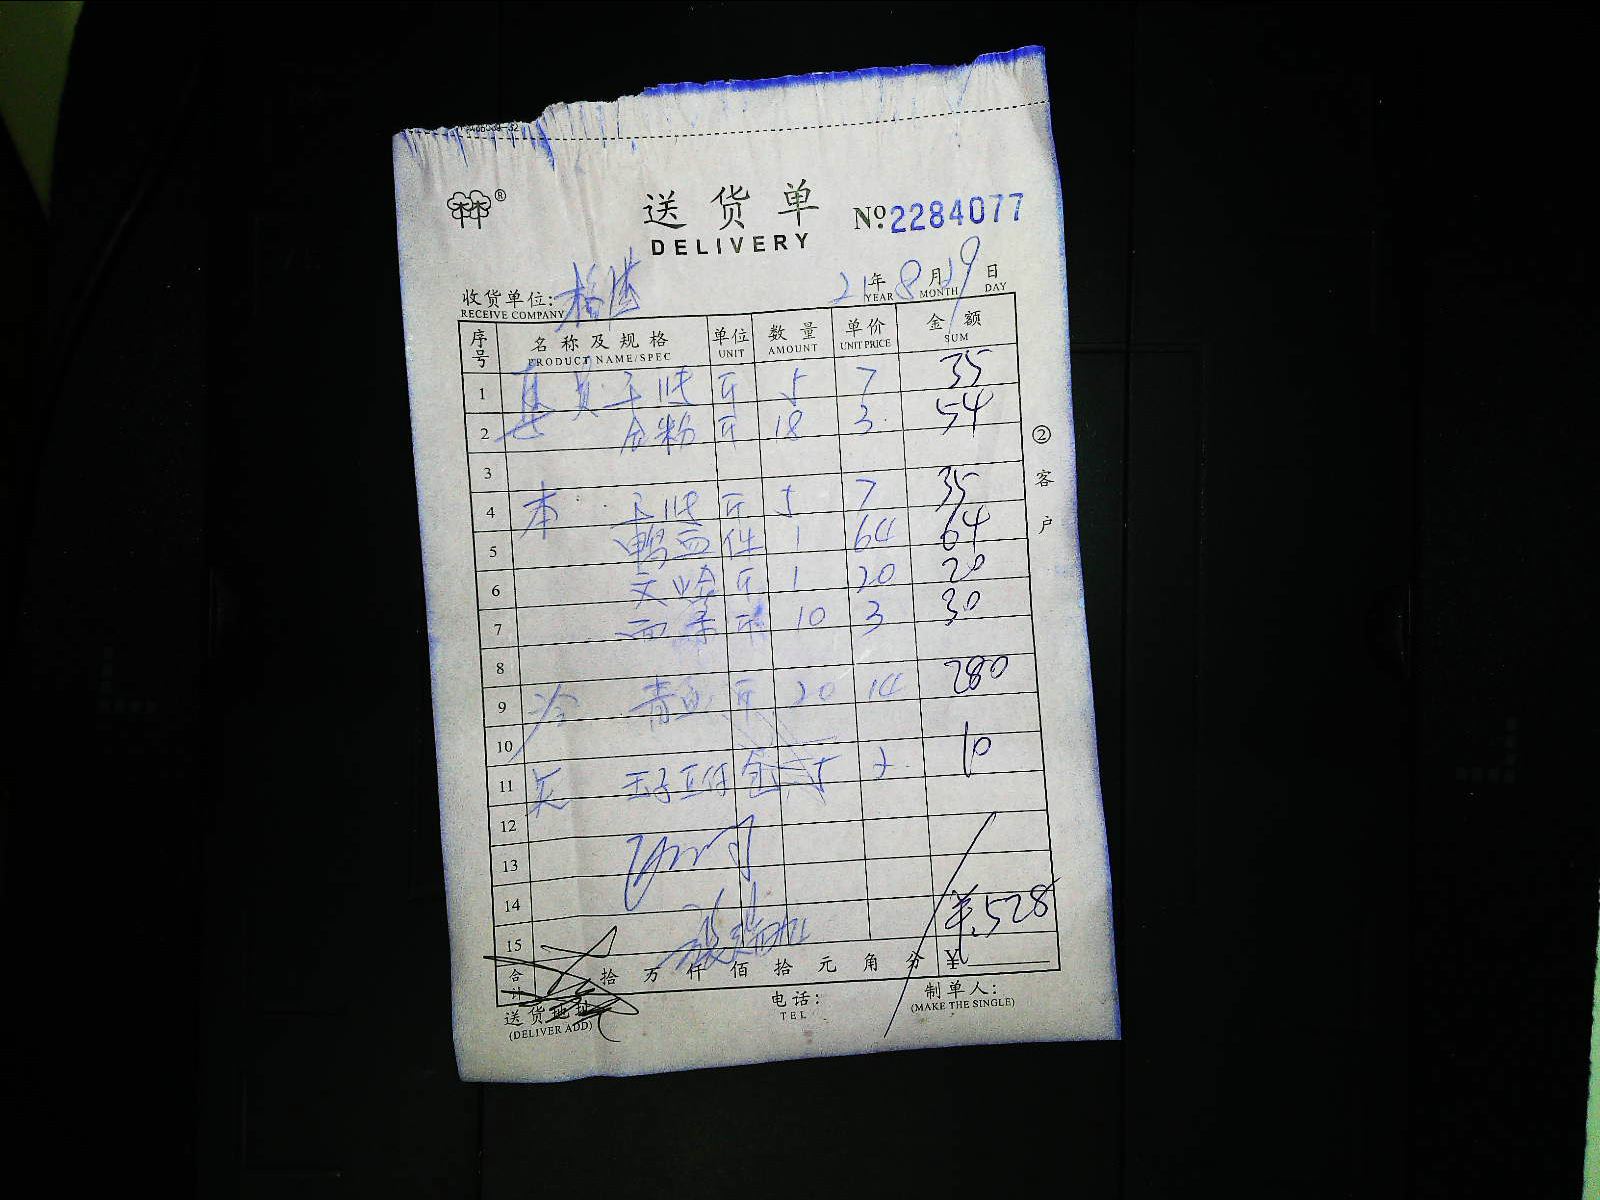 送货单
№ 2284077
DELIVERY
收货单位:
RECEIVE COMPANY
21年8月19日
YEAR MONTH DAY
序号 名称及规格 单位 数量 单价 金额
PRODUCT NAME/SPEC UNIT AMOUNT UNIT PRICE SUM
1 斤 5 7 35
2 斤 18 3 54
3
4 本 斤 5 7 35
5 鸭血 件 1 64 64
6 文蛤 斤 1 20 20
7 西芹 斤 10 3 30
8
9 冷 青鱼 斤 20 14 280
10
11 玉子豆付 5 2 10
12
13
14
15
¥528
合计 拾 万 仟 佰 拾 元 角 分 ¥
送货地址
(DELIVER ADD)
电话:
TEL
制单人:
(MAKE THE SINGLE)
②客户